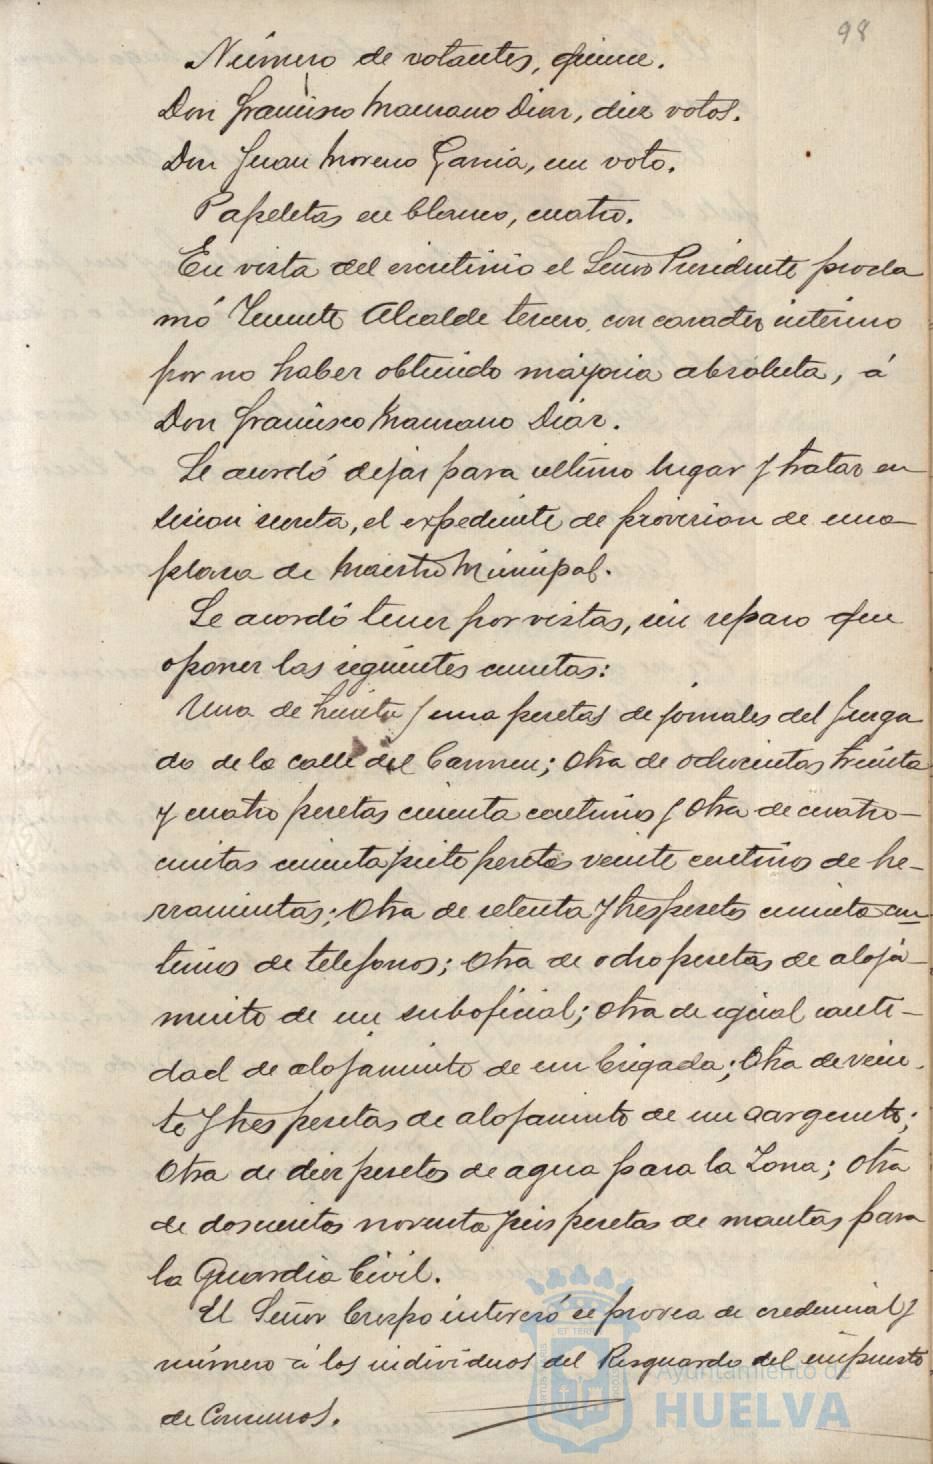 98
Número de votantes, quince.
Don Francisco Manzano Diaz, diez votos.
Don Juan Moreno Garcia, un voto.
Papeletas en blanco, cuatro.
En vista del escrutinio el Señor Presidente procla
mó Teniente Alcalde tercero, con caracter interino
por no haber obtenido mayoria absoluta, á
Don Francisco Manzano Diaz.
Se acordó dejar para ultimo lugar y tratar en
sesion secreta, el expediente de provision de una
plaza de Maestro Municipal.
Se acordó tener por vistas, sin reparo que
oponer las siguientes cuentas:
Una de treinta y una pesetas de jornales del Juzga
do de la calle del Carmen; Otra de ochocientas treinta
y cuatro pesetas cincuenta centimos y Otra de cuatro-
cientas cincuenta y siete pesetas veinte centimos de he-
rramientas; Otra de setenta y tres pesetas cincuenta cen
timos de telefonos; Otra de ocho pesetas de aloja-
miento de un suboficial; Otra de igual canti-
dad de alojamiento de un brigada; Otra de vein-
te y tres pesetas de alojamiento de un sargento;
Otra de diez pesetas de agua para la Zona; Otra
de doscientas noventa y seis pesetas de mantas para
la Guardia Civil.
El Señor Crespo interesó se provea de credencial y
número á los individuos del Resguardo del impuesto
de Consumos.
Ayuntamiento de
HUELVA